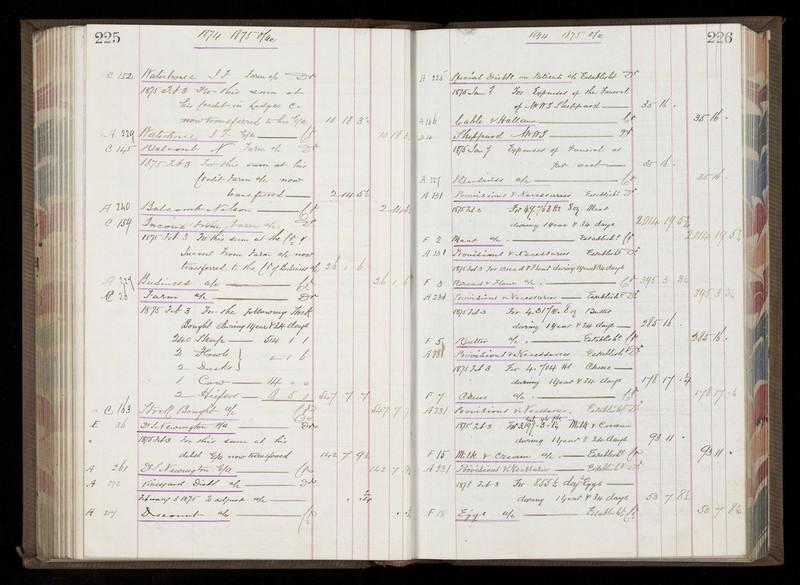 225
1874 1875 a/c
C 152 Waterhouse J. T. Farm a/c Dr
1875 Feb 3 For this sum at
his Credit in Ledger C.
now transferred to his a/c 10 18 3
A 229 Waterhouse J. T. a/c Cr 10 18 3
C 145 Balcomb N Farm a/c Dr
1875 Feb 3 For this sum at his
Credit Farm a/c now
transferred 2 14 5½
A 240 Balcomb Nelson Cr 2 14 5½
C 159 Income From Farm a/c Dr
1875 Feb 3 For this sum at the Cr of
Income From Farm a/c now
transferred to the Cr of Business a/c 26 1 6
A 227 Business a/c Cr 26 1 6
C 26 Farm a/c Dr
1875 Feb 3 For the following Stock
Bought during 1 year & 34 days
240 Sheep 514 1 1
2 Fowls
2 Ducks 1 6
1 Cow 14
2 Heifers 18 5 0 547 7 7
C 163 Stock Bought a/c Cr 547 7 7
E 36 D. S. Newington a/c Dr
1875 Feb 3 For this sum at his
debit a/c now transferred 142 7 9½
A 261 D. S. Newington a/c Cr 142 7 9½
A 272 Dr
February 3 1875 To adjust a/c
A 217 Discount a/c Cr
226
1874 1875 a/c
A 225 Special Disbts on Patients a/c Establisht Dr
1875 Jan 7 For Expenses of the Funeral
of Mr W S Sheppard 35 16 .
A 186 Cable & Hallam Cr 35 16 .
Sheppard Mr W S Dr
1875 Jan 7 Expenses of Funeral as
per acct 35 16 .
A 227 Business a/c Cr 35 16 .
A 231 Provisions & Necessaries Establisht Dr
1875 Feb 3 For 69,763 lbs 8 oz Meat
during 1 year & 34 days 2014 19 5½
F 2 Meat a/c Establisht Cr 2014 19 5½
A 231 Provisions & Necessaries Establisht Dr
1875 Feb 3 For Bread & Flour during 1 year & 34 days
F 3 Bread & Flour a/c Cr 395 3 3½ 395 3 3½
A 231 Provisions & Necessaries Establisht Dr
1875 Feb 3 For 4,317 lbs 6 oz Butter
during 1 year & 34 days 285 16 .
F 5 Butter a/c Establisht Cr 285 16 .
A 231 Provisions & Necessaries Establisht Dr
1875 Feb 3 For 4,704 lbs Cheese
during 1 year & 34 days 178 17
F 7 Cheese a/c Cr 178 17
A 231 Provisions & Necessaries Establisht Dr
1875 Feb 3 For Milk & Cream
during 1 year & 34 days 93 11 .
F 15 Milk & Cream a/c Establisht Cr 93 11 .
A 231 Provisions & Necessaries Establisht Dr
1875 Feb 3 For 855½ doz Eggs
during 1 year & 34 days 50 7 8½
F 18 Eggs a/c Establisht Cr 50 7 8½